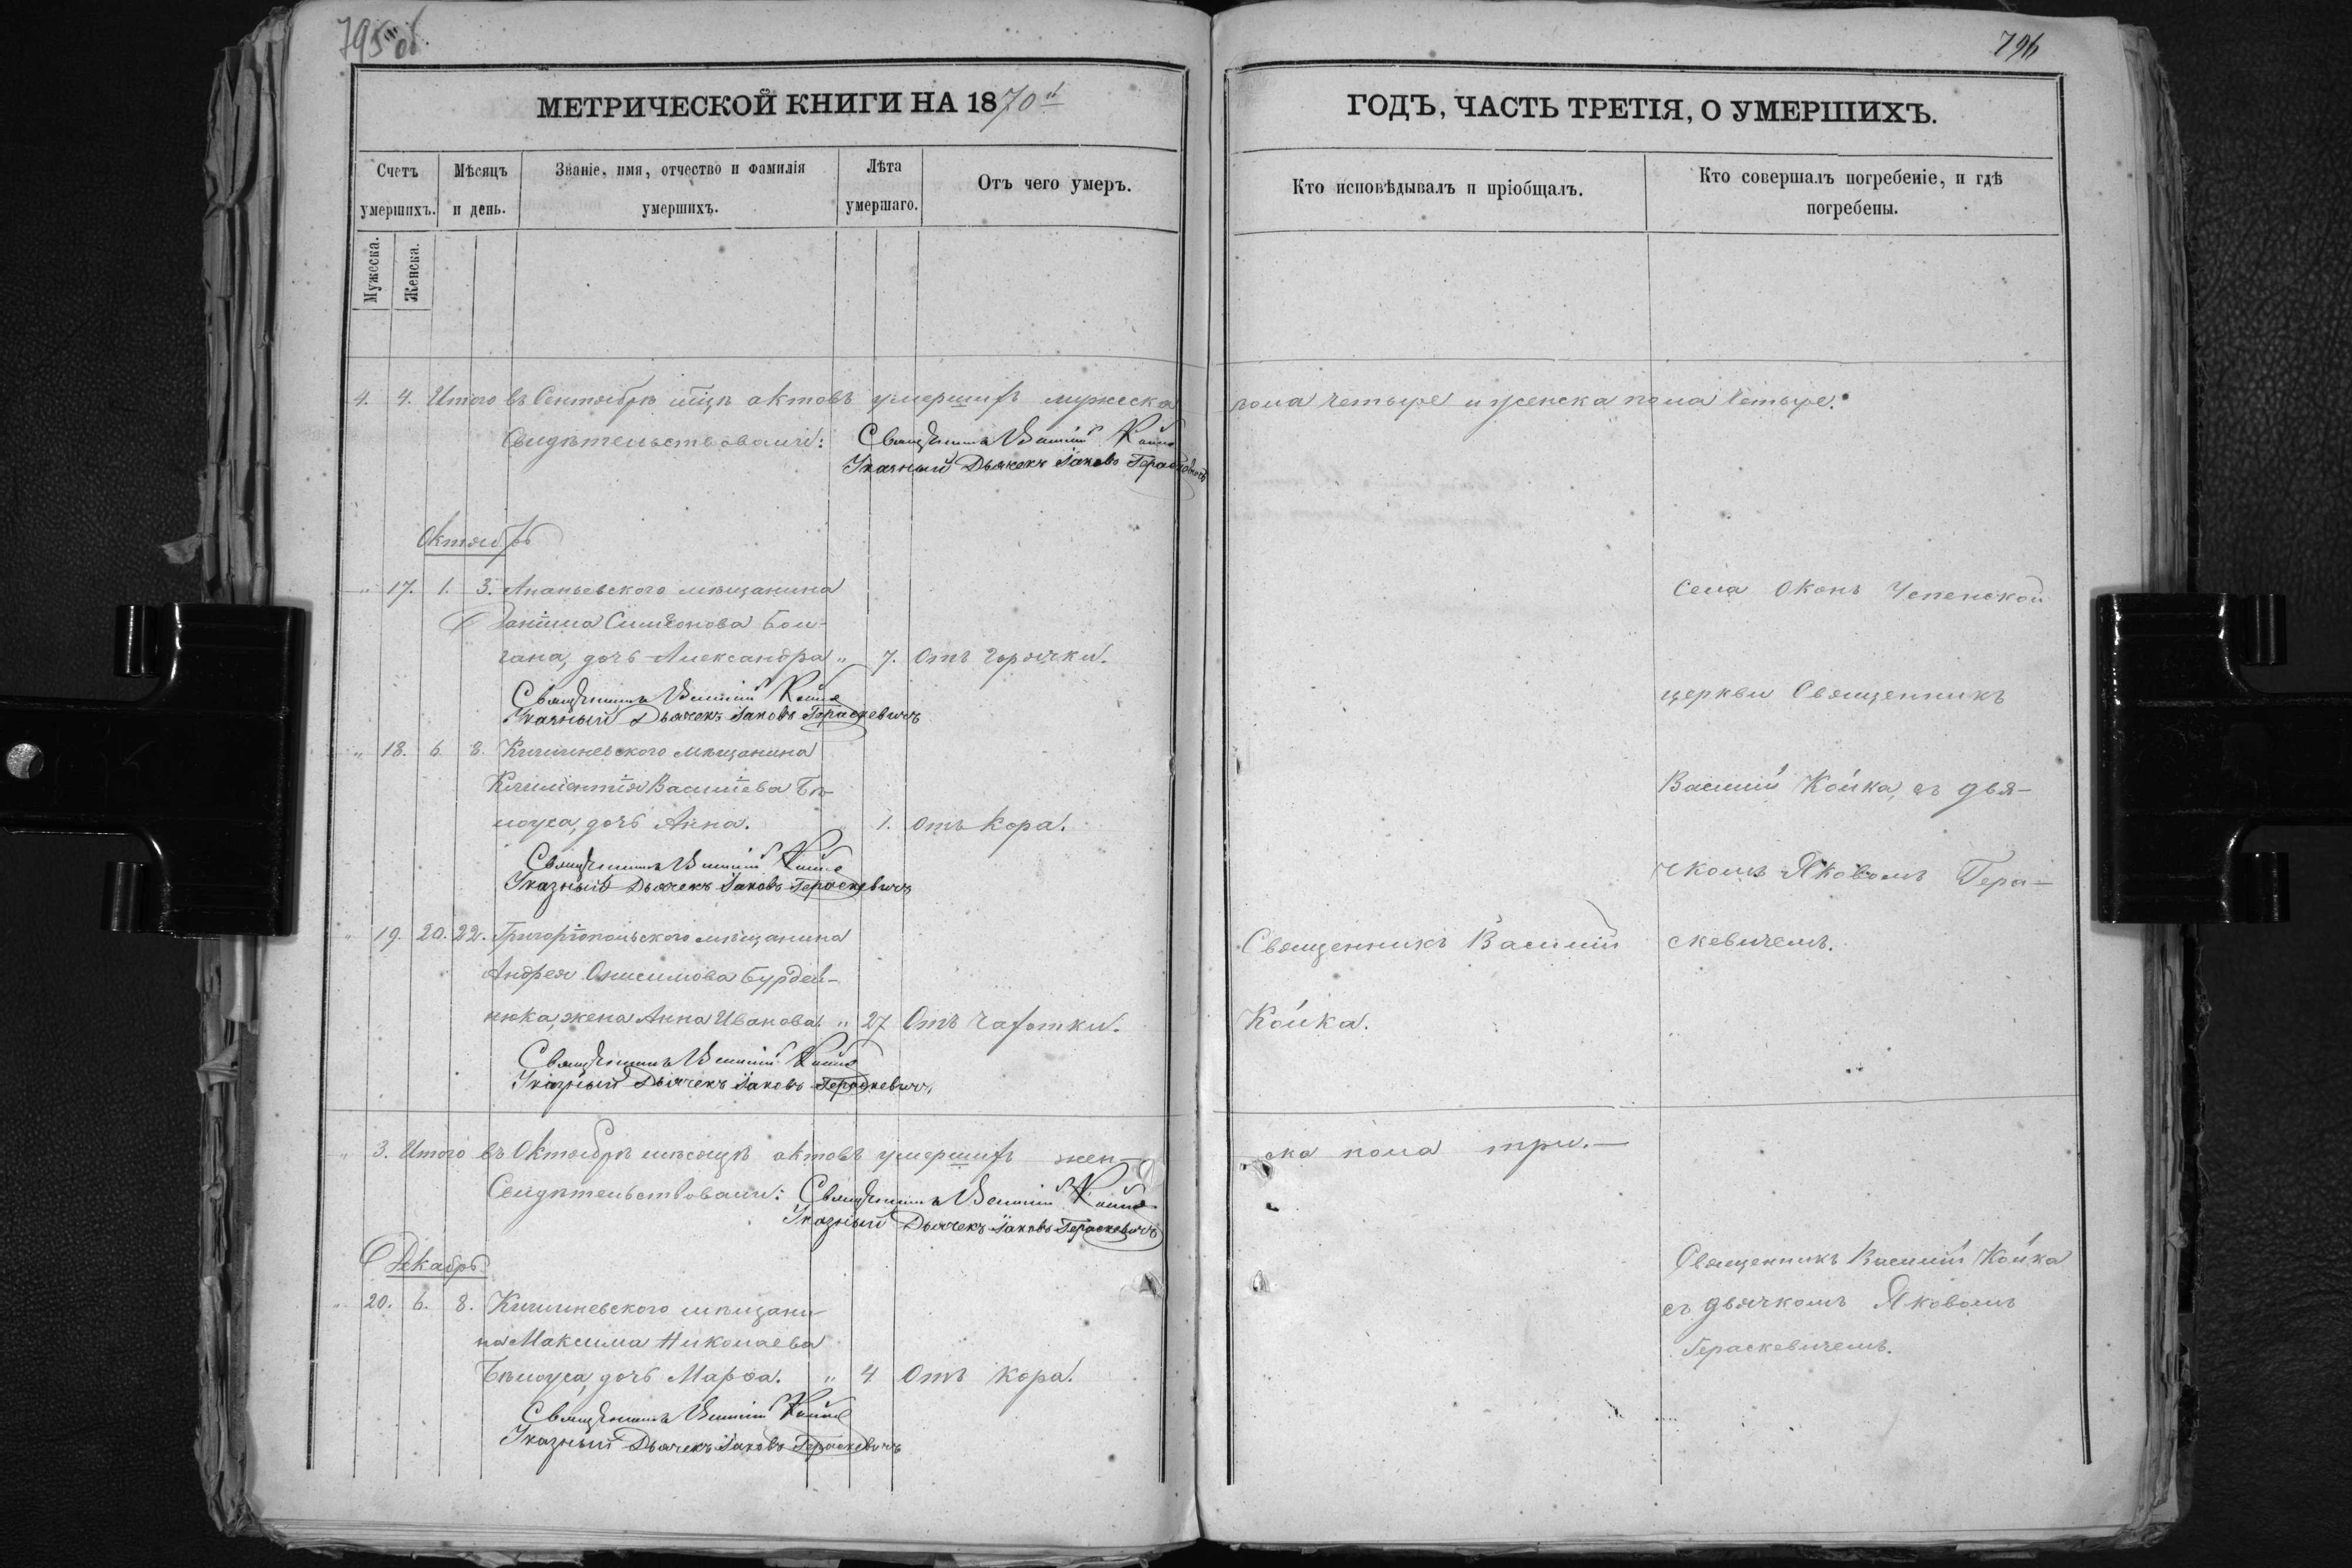 795 об.
МЕТРИЧЕСКОЙ КНИГИ НА 1870й
Счетъ умершихъ.
Мѣсяцъ и день.
Званіе, имя, отчество и фамилія умершихъ.
Лѣта умершаго.
Отъ чего умеръ.
Мужеска.
Женска.
4. 4. Итого въ Сентябрѣ мцѣ актовъ умершихъ мужеска
Свидѣтельствовали: Священникъ Василій Койка
Указный Дьячекъ Іаковъ Гераскевичъ
Октябрь
" 17. 1. 3. Ананьевского мѣщанина
Даніила Симеонова Бол-
гана, дочь Александра " 7. Отъ горячки.
Священникъ Василій Койка
Указный Дьячекъ Іаковъ Гераскевичъ
" 18. 6. 8. Кишиневского мѣщанина
Василіева Бѣ-
лоуса, дочь Анна. 1. Отъ кора.
Священникъ Василій Койка
Указный Дьячекъ Іаковъ Гераскевичъ
" 19. 20. 22. Григоріопольского мѣщанина
Андрея Онисимова Бурдей-
нюка, жена Анна Иванова. " 27 Отъ чахотки.
Священникъ Василій Койка
Указный Дьячекъ Іаковъ Гераскевичъ
" 3. Итого въ Октябрѣ мѣсяцѣ актовъ умершихъ жен-
Свидѣтельствовали: Священникъ Василій Койка
Указный Дьячекъ Іаковъ Гераскевичъ
Декабрь
" 20. 6. 8. Кишиневского мѣщани-
на Максима Николаева
Бѣлоуса, дочь Марѳа. " 4 Отъ кора.
Священникъ Василій Койка
Указный Дьячекъ Іаковъ Гераскевичъ
796
ГОДЪ, ЧАСТЬ ТРЕТІЯ, О УМЕРШИХЪ.
Кто исповѣдывалъ и пріобщалъ.
Кто совершалъ погребеніе, и гдѣ погребены.
пола четыре и женска пола четыре.
Села Оконъ
церкви Священникъ
Василій Койка, съ дья-
чкомъ Яковомъ Гера-
скевичемъ.
Священникъ Василій
Койка.
ска пола три.—
Священникъ Василій Койка
съ дьячкомъ Яковомъ
Гераскевичемъ.